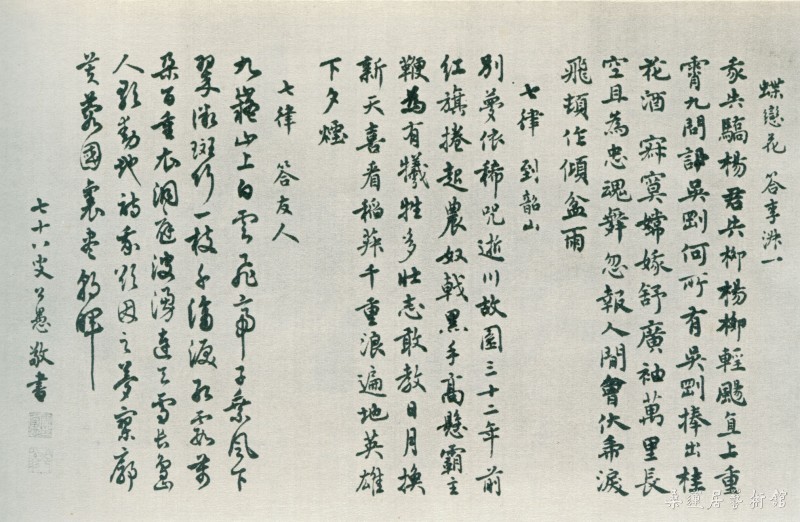 蝶戀花 答李淑一
我失驕楊君失柳楊柳輕颺直上重
霄九問訊吳剛何所有吳剛捧出桂
花酒 寂寞嫦娥舒廣袖萬里長
空且為忠魂舞忽報人間曾伏虎淚
飛頓作傾盆雨
七律 到韶山
別夢依稀咒逝川故園三十二年前
紅旗捲起農奴戟黑手高懸霸主
鞭為有犧牲多壯志敢教日月換
新天喜看稻菽千重浪遍地英雄
下夕煙
七律 答友人
九嶷山上白雲飛帝子乘風下
翠微斑竹一枝千滴淚紅霞萬
朵百重衣洞庭波湧連天雪長島
人歌動地詩我欲因之夢寥廓
芙蓉國裏盡朝暉
七十八叟公愚敬書
桑蓮居藝術館